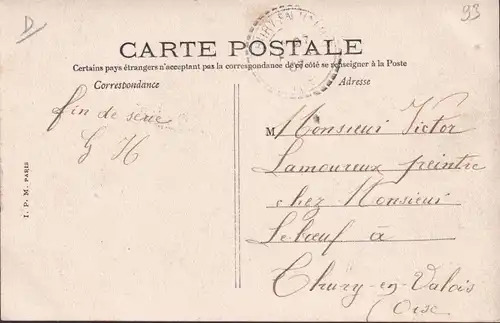 D
93
CARTE POSTALE
Certains pays étrangers n'acceptant pas la correspondance de ce côté se renseigner à la Poste
Correspondance
Adresse
fin de série
G H
M Monsieur Victor
Lamoureux peintre
chez Monsieur
Leboeuf à
Thury-en-Valois
(Oise
I. P. M. PARIS